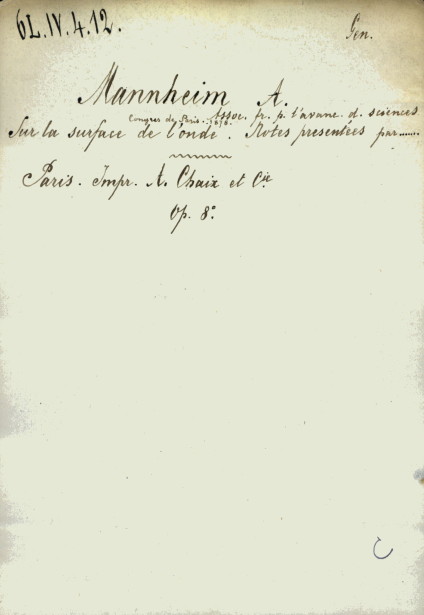 6L.IV.4.12. Gen.
Mannheim A.
Congrès de Paris. 1878. Assoc. fr. p. l'avanc. d. sciences
Sur la surface de l'onde. Notes présentées par......
Paris. Impr. A. Chaix et Cie
Op. 8°